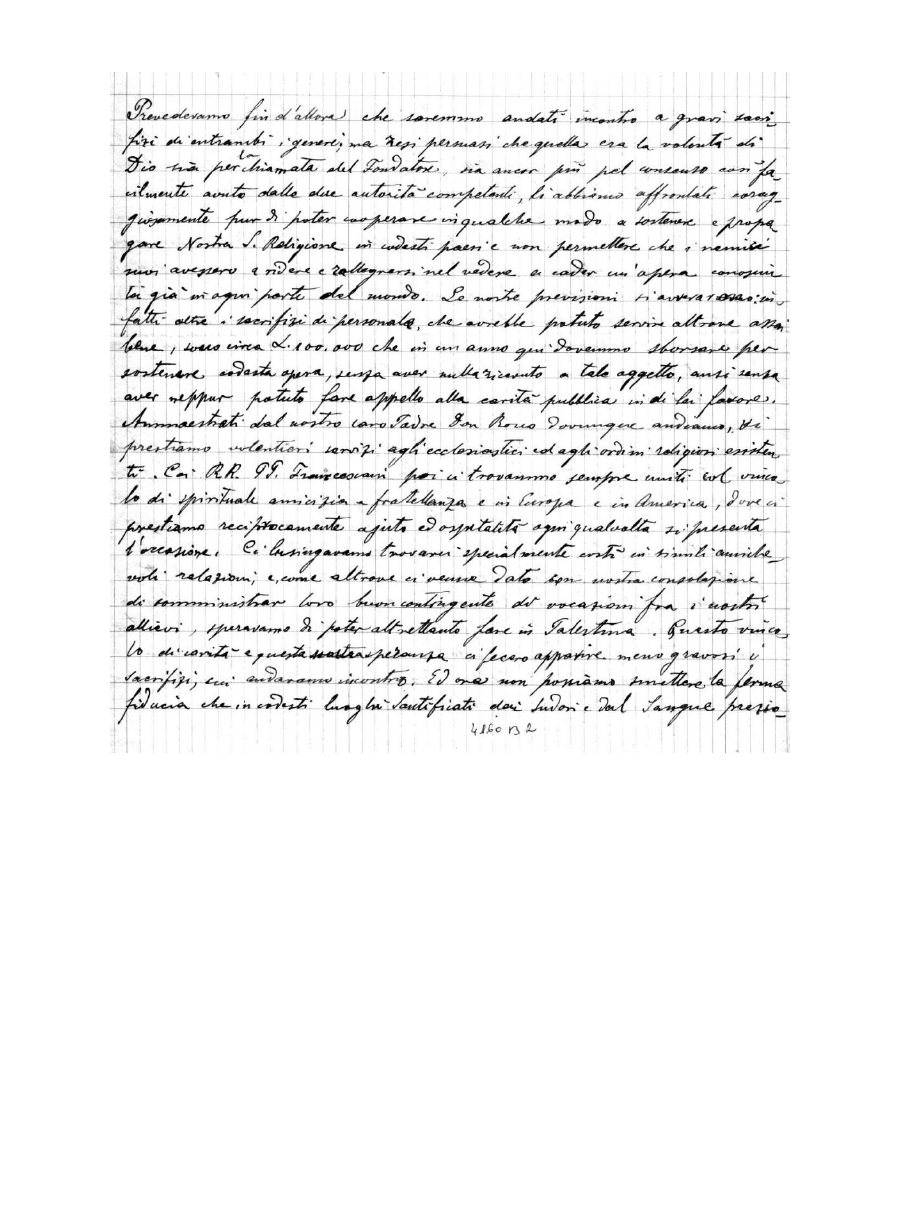 Prevedevamo fin d'allora che saremmo andati incontro a gravi sacri-
fizi di entrambi i generi; ma resi persuasi che quella era la volontà di
Dio sia per la chiamata del Fondatore, sia ancor più pel consenso così fa-
cilmente avuto dalle due autorità competenti, li abbiamo affrontati corag-
giosamente pur di poter cooperare in qualche modo a sostenere e propa
gare Nostra S. Religione in codesti paesi e non permettere che i nemici
suoi avessero a ridere e rallegrarsi nel vedere a cader un'opera conosciu
ta già in ogni parte del mondo. Le nostre previsioni si avverarono: in-
fatti oltre i sacrifizi di personale, che avrebbe potuto servire altrove assai
bene, sono circa L. 100.000 che in un anno qui dovemmo sborsare per
sostenere codesta opera, senza aver nulla ricevuto a tale oggetto, anzi senza
aver neppur potuto fare appello alla carità pubblica in di lei favore.
Ammaestrati dal nostro caro Padre Don Bosco dovunque andiamo,
prestiamo volentieri servizi agli ecclesiastici ed agli ordini religiosi esisten
ti. Coi RR. PP. Francescani poi ci trovammo sempre uniti col vinco
lo di spirituale amicizia e fratellanza e in Europa e in America, dove ci
prestiamo reciprocamente ajuto ed ospitalità ogni qualvolta si presenta
l'occasione. Ci lusingavamo trovarci specialmente costì in simili amiche-
voli relazioni; e, come altrove ci venne dato con nostra consolazione
di somministrar loro buon contingente di vocazioni fra i nostri
allievi, speravamo di poter altrettanto fare in Palestina. Questo vinco-
lo di carità e questa nostra speranza ci fecero apparire meno gravosi i
sacrifizi, cui andavamo incontro. Ed ora non possiamo smettere la ferma
fiducia che in codesti luoghi santificati dai sudori e dal Sangue prezio-
4160 B 2